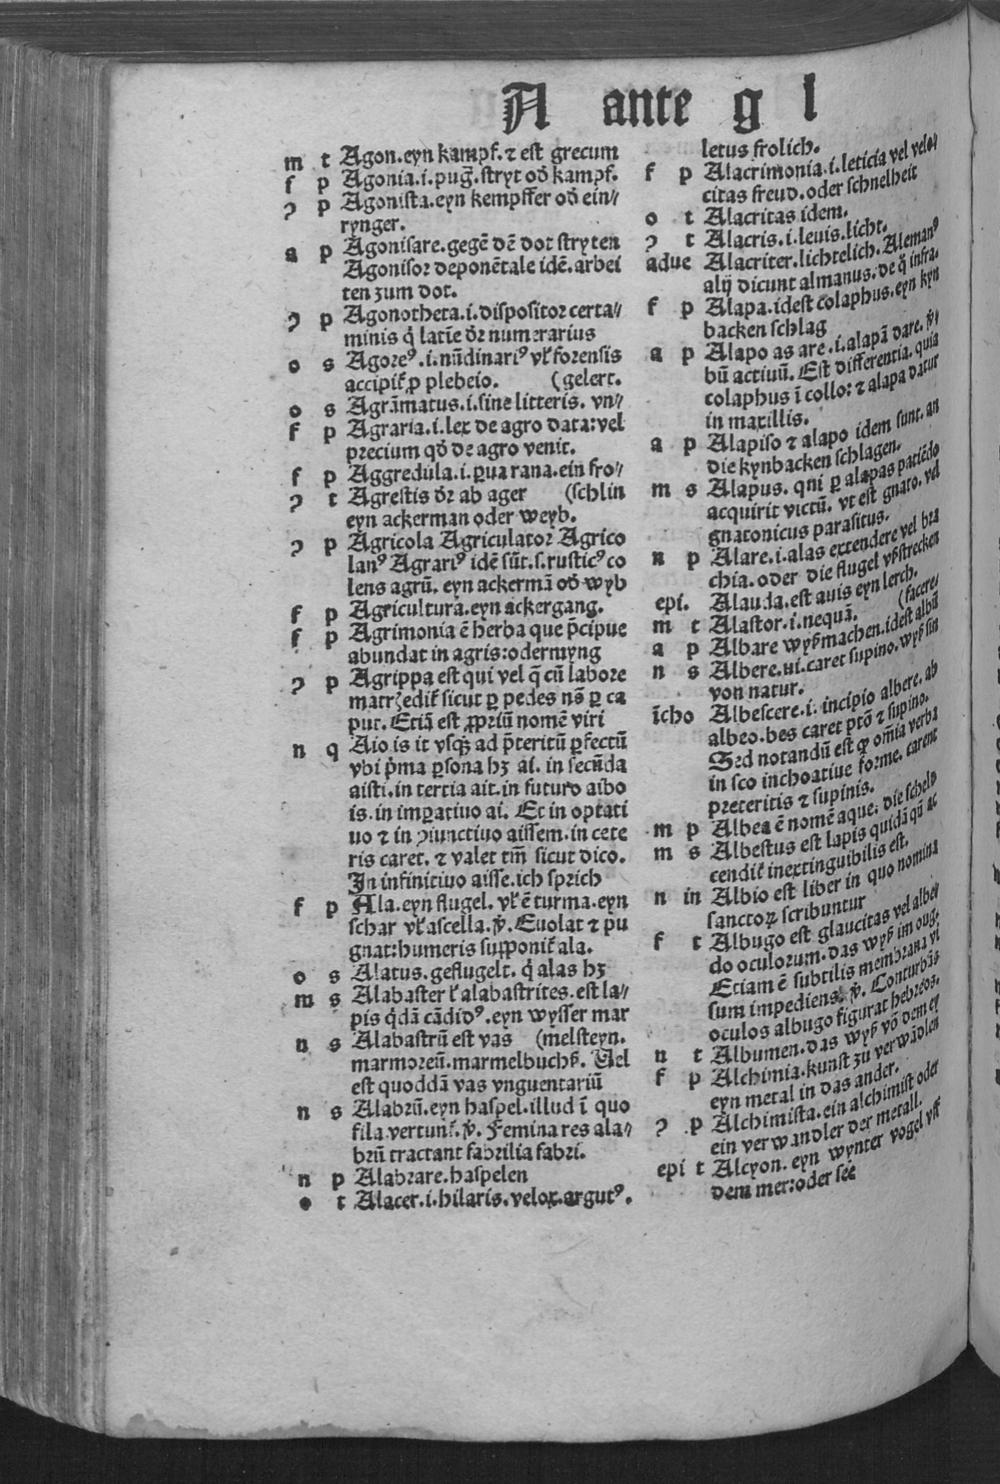 A ante g l
m t Agon.eyn kampf.⁊ est grecum
f p Agonia.i.pug̃.stryt od̓ kampf.
ɔ p Agonista.eyn kempffer od̓ ein⸗
rynger.
a p Agonisare.gegē dē dot stryten
Agonisor deponētale idē.arbei
ten zum dot.
ɔ p Agonotheta.i.dispositor certa⸗
minis q̇ latīe dr̄ numerarius
o s Agoreꝰ.i.nūdinariꝰ vl̓ forensis
accipit̉ ꝓ plebeio. (gelert.
o s Agrāmatus.i.sine litteris. vn⸗
f p Agraria.i.lex de agro data:vel
precium qd̓ de agro venit.
f p Aggredula.i.ꝑua rana.ein fro⸗
ɔ t Agrestis dr̄ ab ager (schlin
eyn ackerman oder weyb.
ɔ p Agricola Agriculator Agrico
lanꝰ Agrariꝰ idē sūt.s.rusticꝰ co
lens agrū. eyn ackermā od̓ wyb
f p Agricultura.eyn ackergang.
f p Agrimonia ē herba que p̄cipue
abundat in agris:odermyng
ɔ p Agrippa est qui vel q̄ cū labore
matrꝫedit̉ sicut ꝑ pedes nō ꝑ ca
put. Etiā est ꝓpriū nomē viri
n q Aio.is it vsqꝫ ad p̄teritū ꝑfectū
vbi p̓ma ꝑsona hꝫ ai. in secūda
aisti.in tertia ait.in futuro aibo
is.in imꝑatiuo ai. Et in optati
uo ⁊ in ꝯiunctiuo aissem.in cete
ris caret. ⁊ valet tm̄ sicut dico.
In infinitiuo aisse.ich sprich
f p Ala.eyn flugel. vl̓ ē turma.eyn
schar vl̓ ascella.v̓. Euolat ⁊ pu
gnat:humeris supponit̉ ala.
o s Alatus.geflugelt. q̇ alas hꝫ
m s Alabaster l̓ alabastrites.est la⸗
pis q̇dā cādidꝰ.eyn wysser mar
n s Alabastrū est vas (melsteyn.
marmoreū.marmelbuchß. Uel
est quoddā vas vnguentariū
n s Alabrū.eyn haspel.illud ī quo
fila vertunt̉.v̓. Femina res ala⸗
brū tractant fabrilia fabri.
n p Alabrare.haspelen
o t Alacer.i.hilaris.velox.argutꝰ.
letus frolich.
f p Alacrimonia.i.leticia vel velo⸗
citas freud.oder schnelheit
o t Alacritas idem.
ɔ t Alacris.i.leuis.licht.
adue Alacriter.lichtelich. Alemanꝰ
alij dicunt almanus.de q̇ infra.
f p Alapa.idest colaphus.eyn kyn
backen schlag
a p Alapo as are.i.alapā dare. v̓
bū actiuū. Est differentia. quia
colaphus ī collo: ⁊ alapa datur
in maxillis.
a p Alapiso ⁊ alapo idem sunt. an
die kynbacken schlagen.
m s Alapus. qui ꝑ alapas patiēdo
acquirit victū. vt est gnaro. vel
gnatonicus parasitus.
n p Alare.i.alas extendere vel bra
chia.oder die flugel vßstrecken
epi. Alauda.est auis eyn lerch.
m t Alastor.i.nequā. (facere⸗
a p Albare wyßmachen.idest albū
n s Albere.ui.caret supino.wyß sin
von natur.
īcho Albescere.i. incipio albere. ab
albeo.bes caret ptō ⁊ supino.
Sed notandū est ꝙ om̄ia verba
in sco inchoatiue forme. carent
preteritis ⁊ supinis.
m p Albea ē nomē aque. die schelp
m s Albestus est lapis quidā qū ac
cendit̉ inextinguibilis est.
n in Albio est liber in quo nomina
sanctoꝝ scribuntur
f t Albugo est glaucitas vel albe⸗
do oculorum.das wyß im oug.
Etiam ē subtilis membrana vi
sum impediens. v̓. Conturbās
oculos albugo figurat hebreos.
n t Albumen.das wyß vō dem ey
f p Alchimia.kunst zu verwādlen
eyn metal in das ander.
ɔ p Alchimista.ein alchimist oder
ein verwandler der metall.
epi t Alcyon. eyn wynter vogel vff
dem mer:oder see